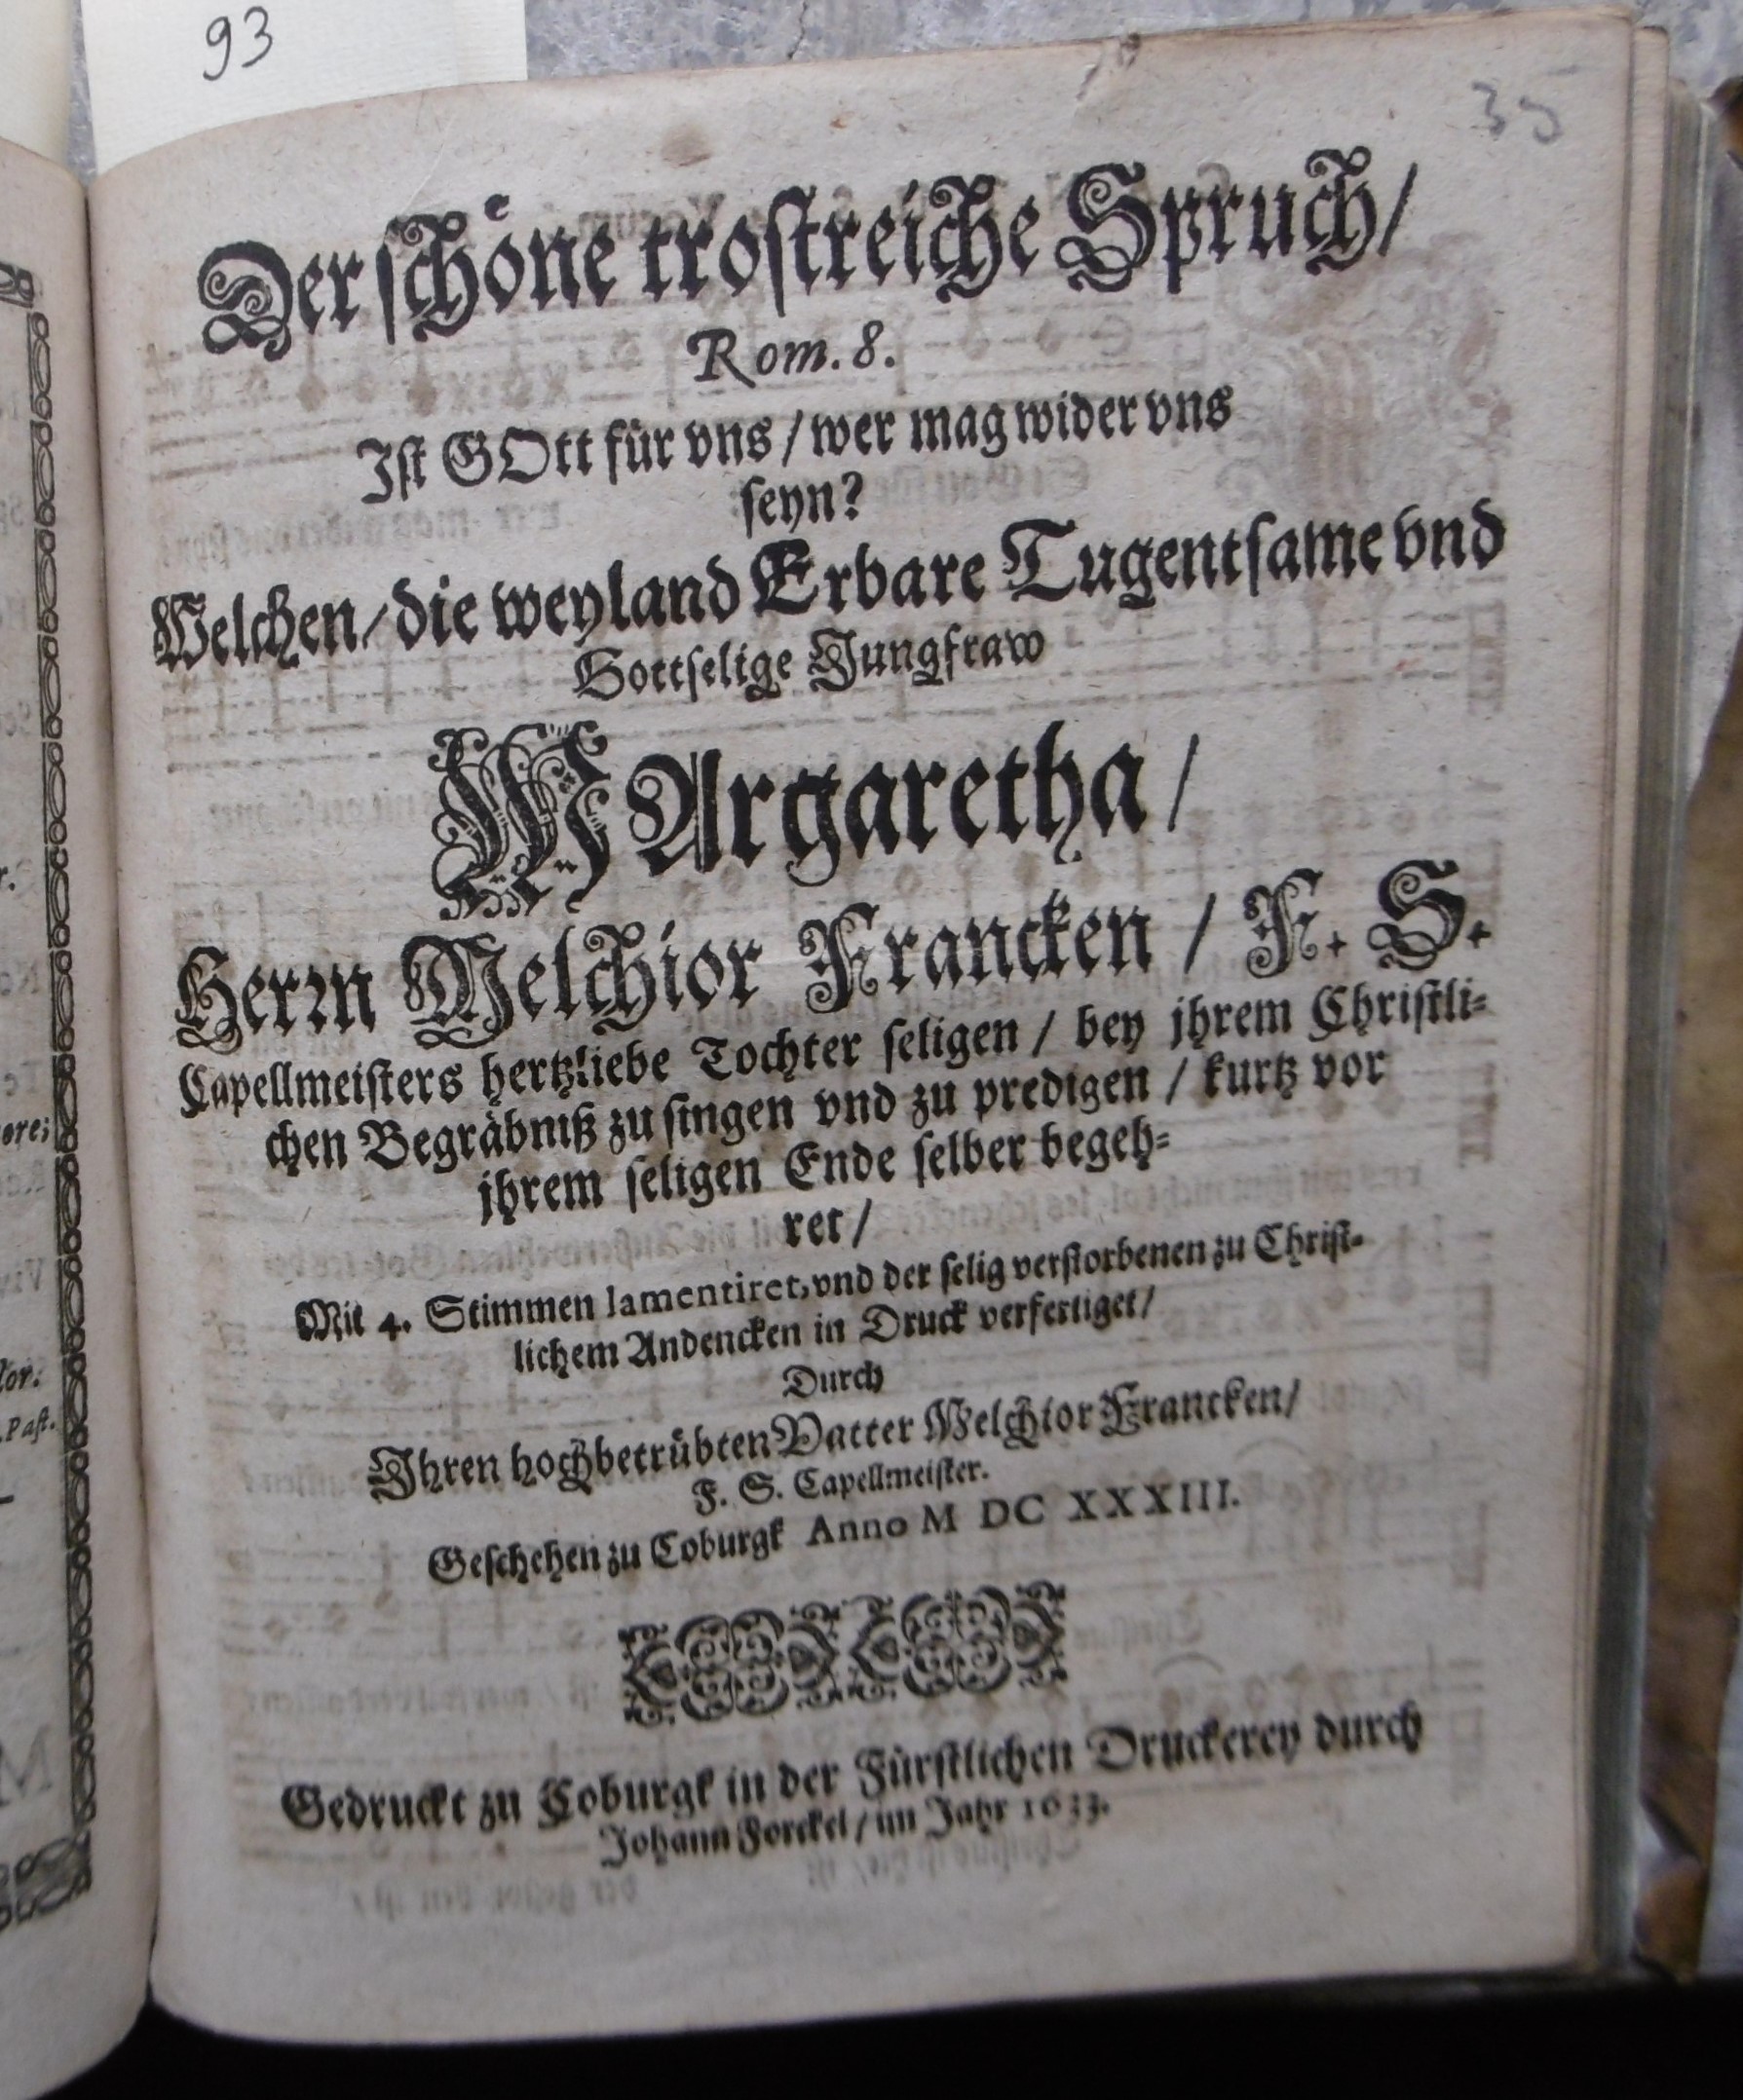 93
35
Der schöne trostreiche Spruch/
Rom. 8.
Ist GOtt für vns / wer mag wider vns
seyn?
Welchen / die weyland Erbare Tugentsame vnd
Gottselige Jungfraw
MArgaretha /
Herrn Melchior Francken / F. S.
Capellmeisters hertzliebe Tochter seligen / bey jhrem Christli-
chen Begräbniß zu singen vnd zu predigen / kurtz vor
jhrem seligen Ende selber begeh-
ret /
Mit 4. Stimmen lamentiret, vnd der selig verstorbenen zu Christ-
lichem Andencken in Druck verfertiget /
Durch
Ihren hochbetrübten Vatter Melchior Francken /
F. S. Capellmeister.
Geschehen zu Coburgk Anno M DC XXXIII.
Gedruckt zu Coburgk in der Fürstlichen Druckerey durch
Johann Forckel / im Jahr 1633.